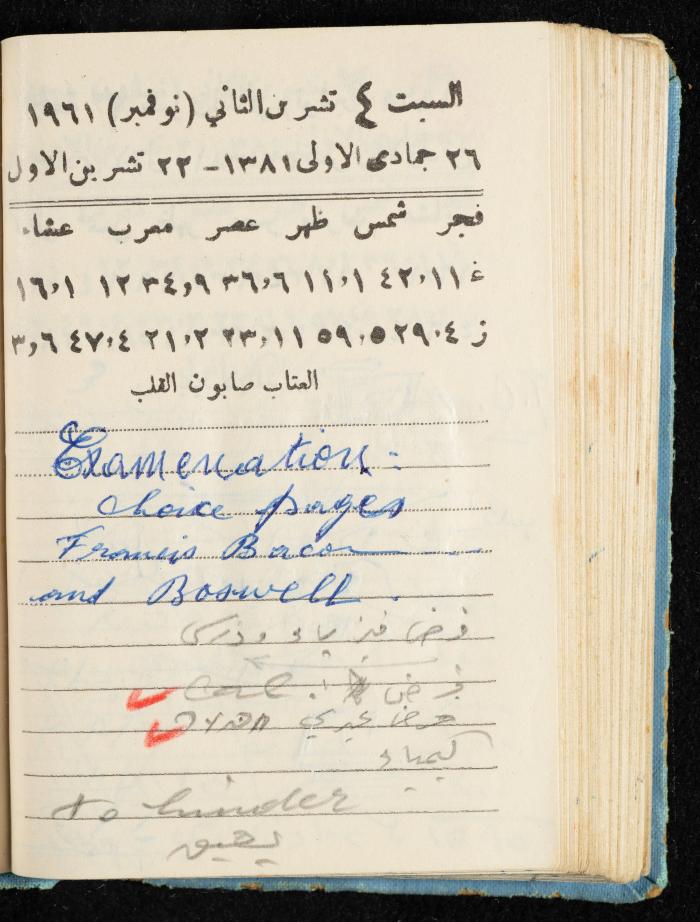 السبت ٤ تشرين الثاني (نوفمبر) ١٩٦١
٢٦ جمادى الاولى ١٣٨١ – ٢٢ تشرين الاول
فجر شمس ظهر عصر مغرب عشاء
غ ٤٢،١١ ١١،١ ٣٦،٦ ٣٤،٩ ١٢ ١٦،١
ز ٢٩،٤ ٥٩،٥ ٢٣،١١ ٢١،٢ ٤٧،٤ ٣،٦
العتاب صابون القلب
Examenation:
choice pages
Francis Bacon
and Boswell.
فرض فيزياء
فرض
فرض عبري
كيمياء
to hinder
يعيق